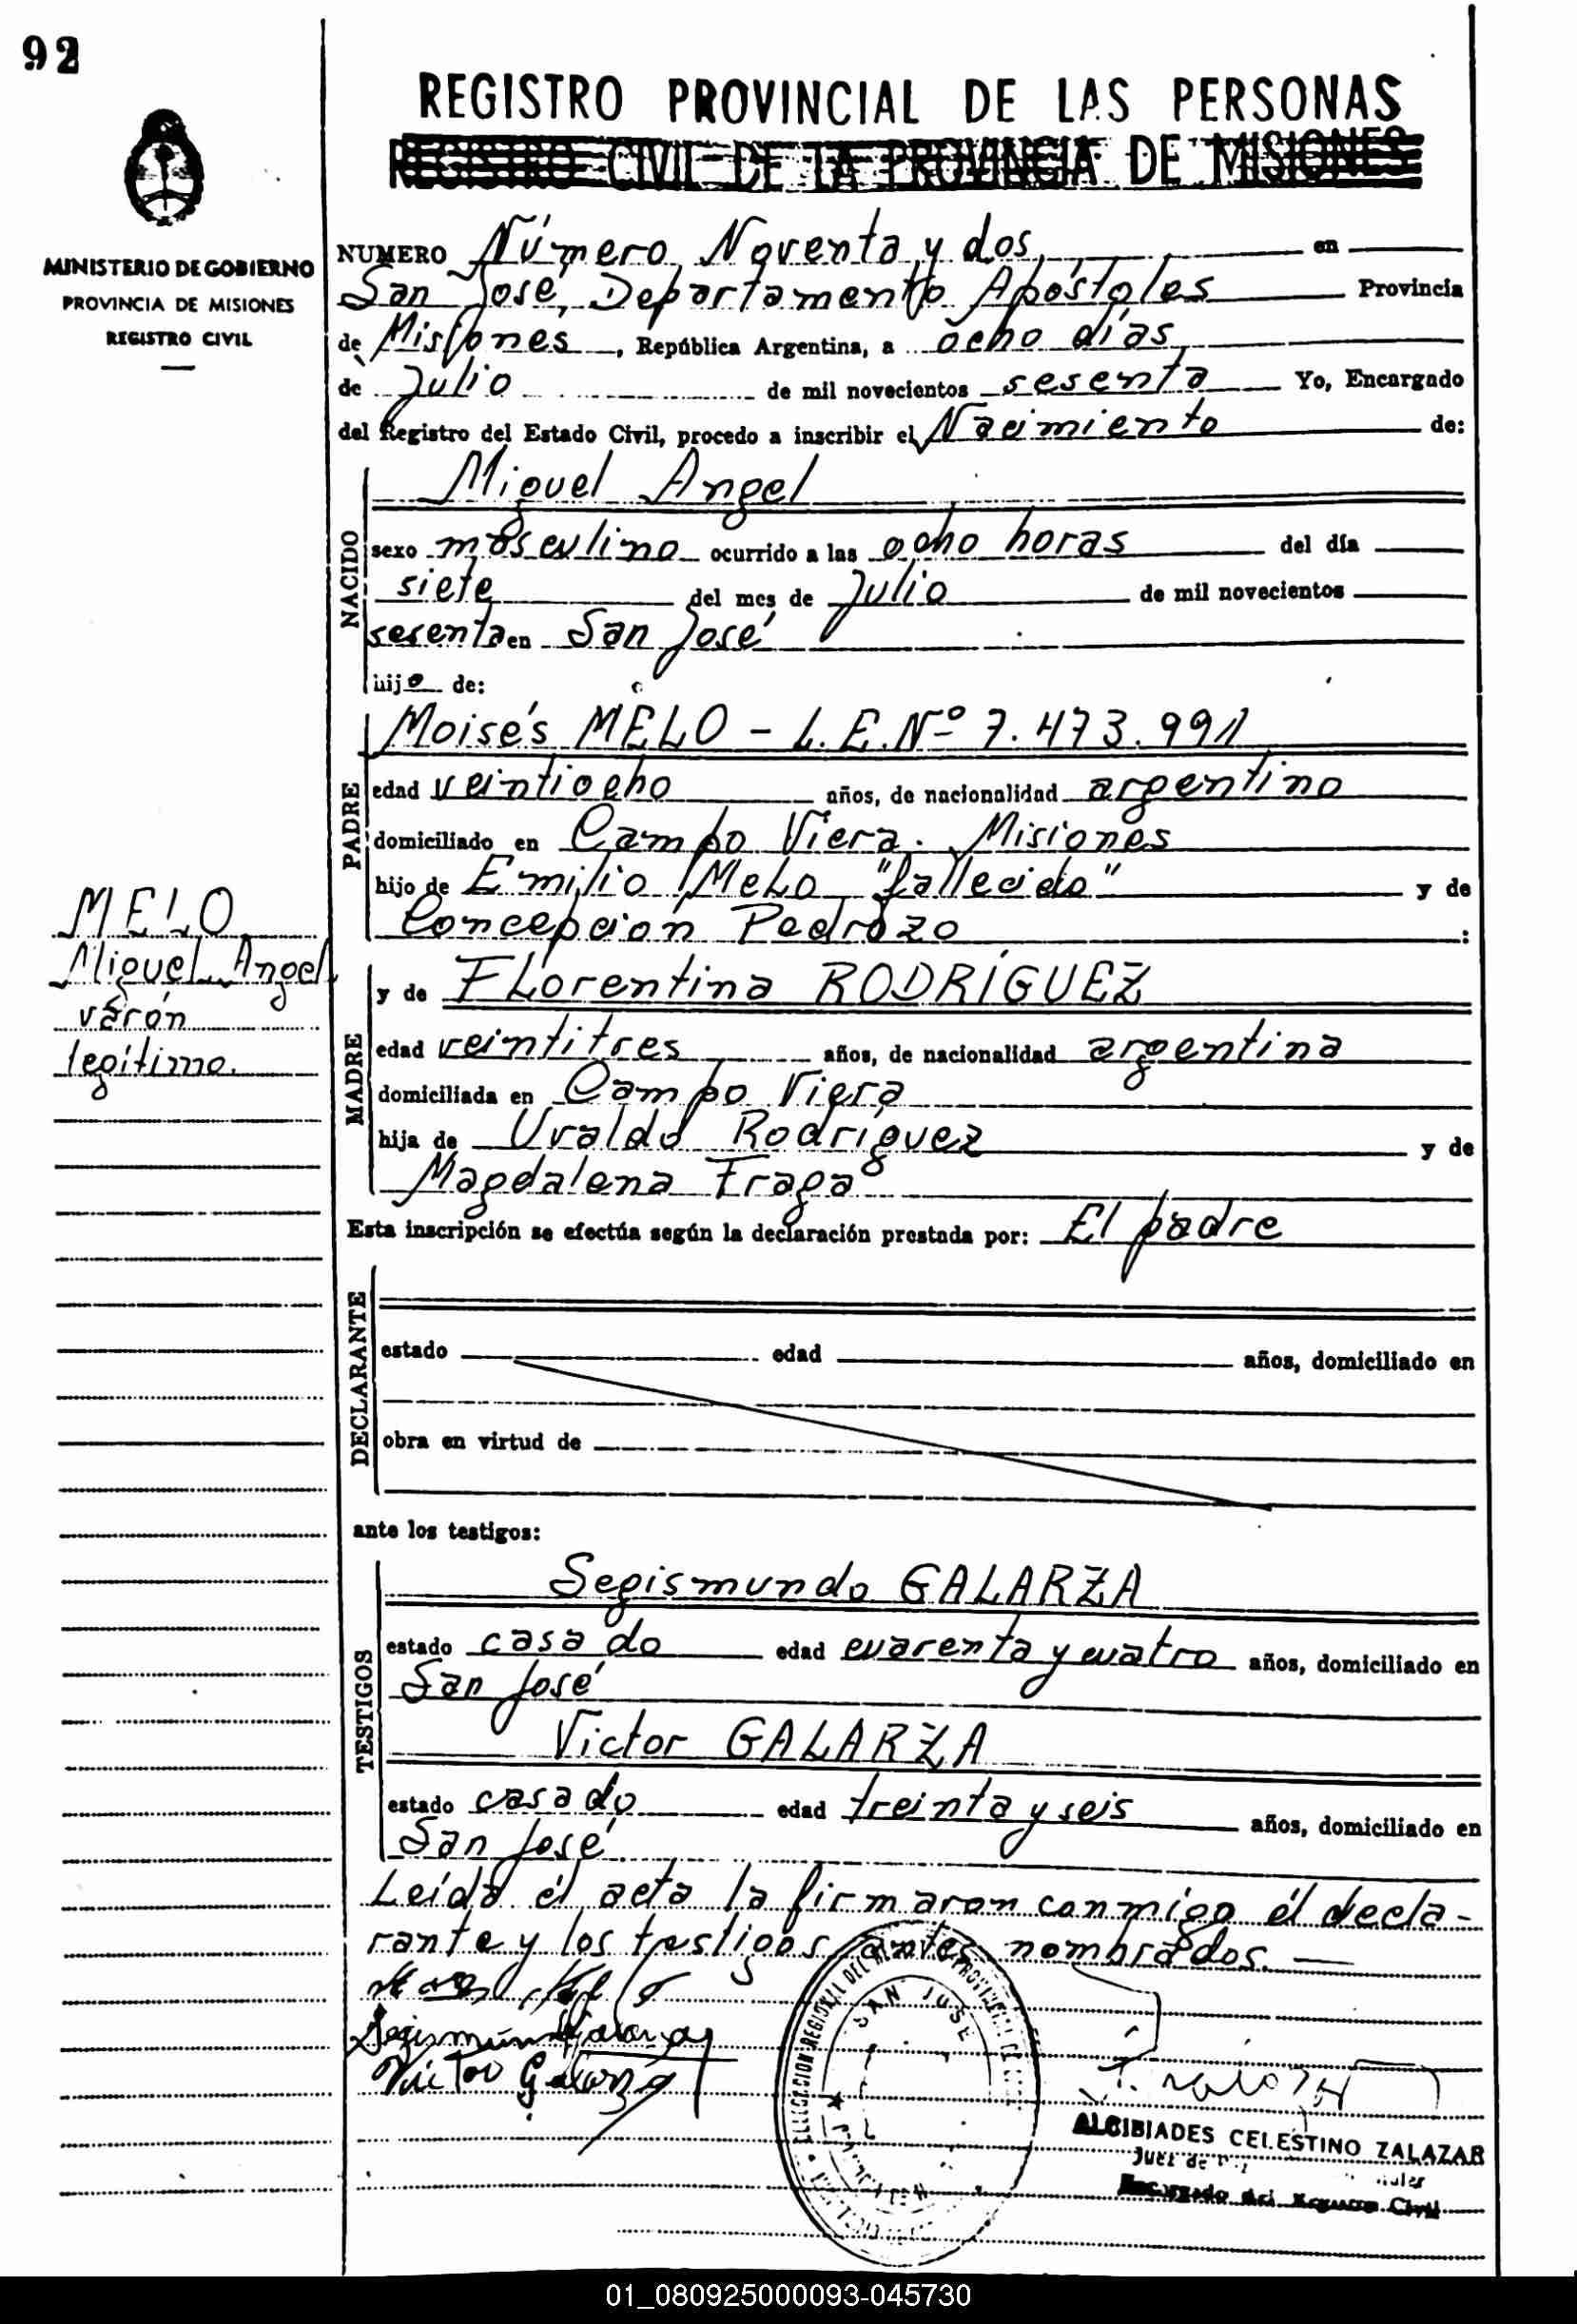 92
REGISTRO PROVINCIAL DE LAS PERSONAS
REGISTRO CIVIL DE LA PROVINCIA DE MISIONES
MINISTERIO DE GOBIERNO
PROVINCIA DE MISIONES
REGISTRO CIVIL
NUMERO Número Noventa y dos en
San José, Departamento Apóstoles Provincia
de Misiones, República Argentina, a ocho días
de Julio de mil novecientos sesenta Yo, Encargado
del Registro del Estado Civil, procedo a inscribir el Nacimiento de:
NACIDO
Miguel Angel
sexo masculino ocurrido a las ocho horas del día
siete del mes de Julio de mil novecientos
sesenta en San José
hijo de:
PADRE
Moisés MELO - L.E.Nº 7.473.991
edad veintiocho años, de nacionalidad argentino
domiciliado en Campo Viera. Misiones
hijo de Emilio Melo "fallecido" y de
Concepción Pedrozo :
MELO
Miguel Angel
varón
legítimo.
MADRE
y de Florentina RODRÍGUEZ
edad veintitres años, de nacionalidad argentina
domiciliada en Campo Viera
hija de Uvaldo Rodríguez y de
Magdalena Fraga
Esta inscripción se efectúa según la declaración prestada por: El padre
DECLARANTE
estado edad años, domiciliado en
obra en virtud de
ante los testigos:
TESTIGOS
Segismundo GALARZA
estado casado edad cuarenta y cuatro años, domiciliado en
San José
Victor GALARZA
estado casado edad treinta y seis años, domiciliado en
San José
Leída él acta la firmaron conmigo él decla-
rante y los testigos antes nombrados.
Segismundo Galarza
Victor Galarza
SAN JOSE
ALCIBIADES CELESTINO ZALAZAR
Juez de
Encargado del Registro Civil
01_080925000093-045730